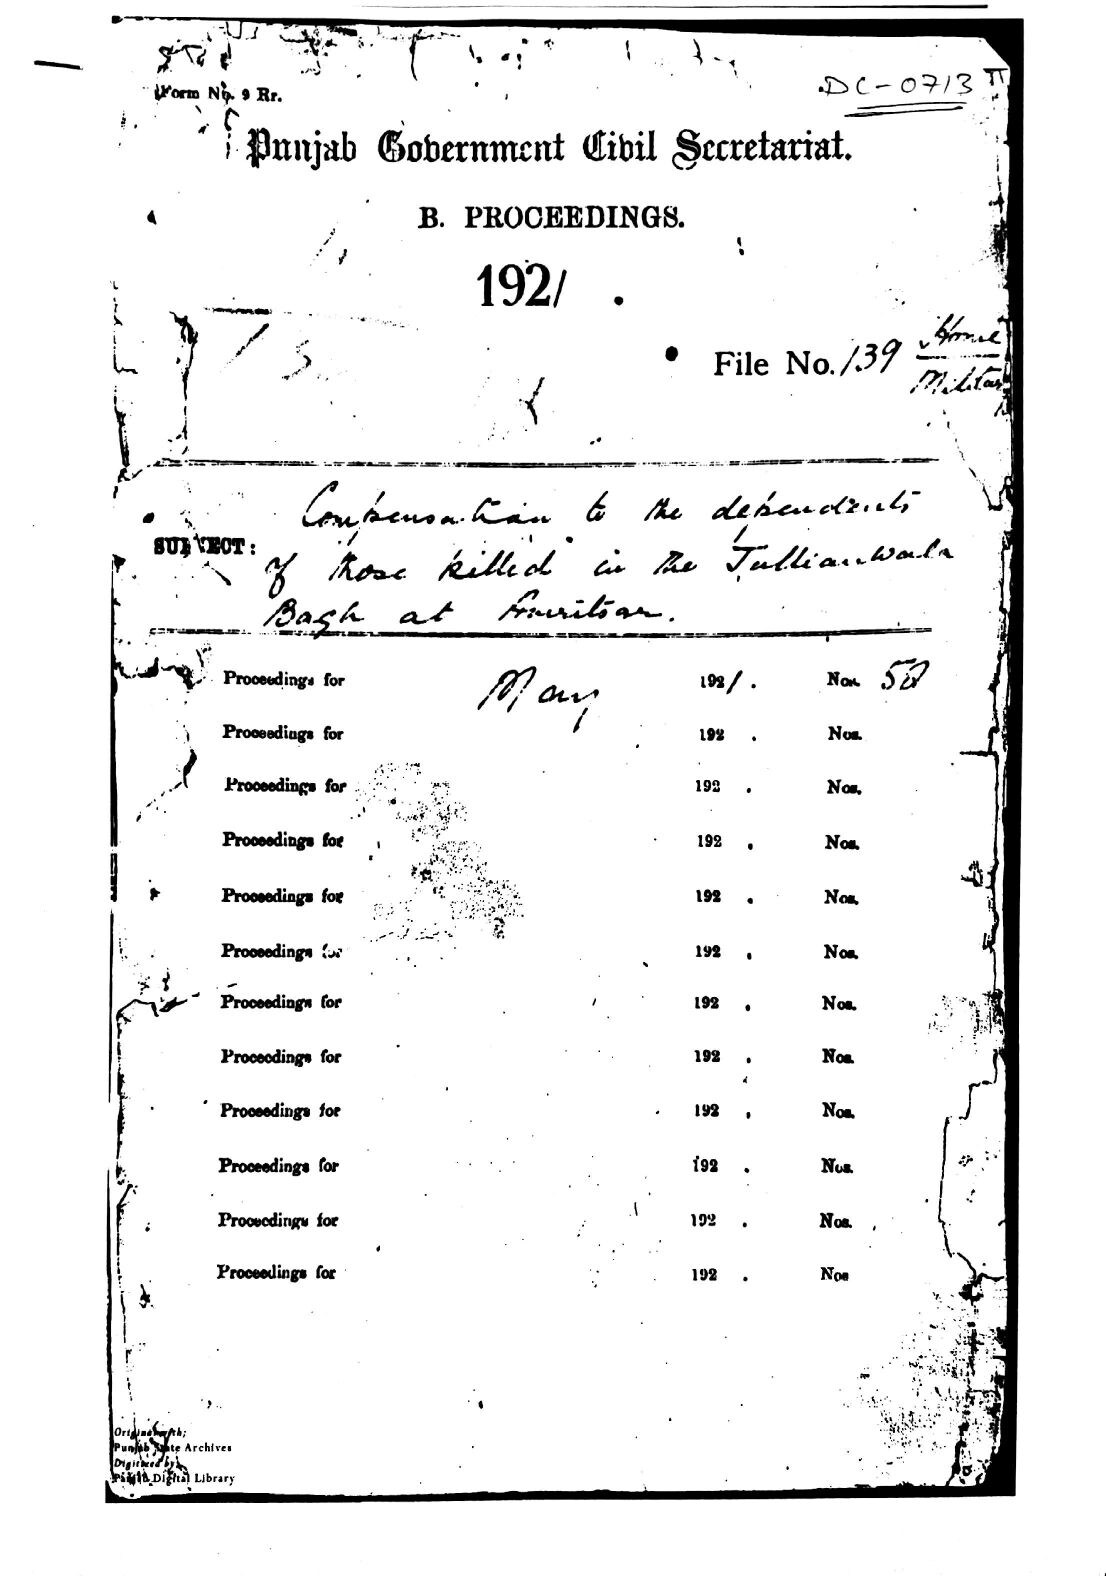 DC-0713 II
Form No. 9 Rr.
Punjab Government Civil Secretariat.
B. PROCEEDINGS.
1921.
File No. 139 Home
Military
SUBJECT: Compensation to the dependents
of those killed in the Jullianwala
Bagh at Amritsar.
Proceedings for May 1921. Nos. 50
Proceedings for 192 . Nos.
Proceedings for 192 . Nos.
Proceedings for 192 . Nos.
Proceedings for 192 . Nos.
Proceedings for 192 . Nos.
Proceedings for 192 . Nos.
Proceedings for 192 . Nos.
Proceedings for 192 . Nos.
Proceedings for 192 . Nos.
Proceedings for 192 . Nos.
Proceedings for 192 . Nos
Original with;
Punjab State Archives
Digitized by;
Panjab Digital Library